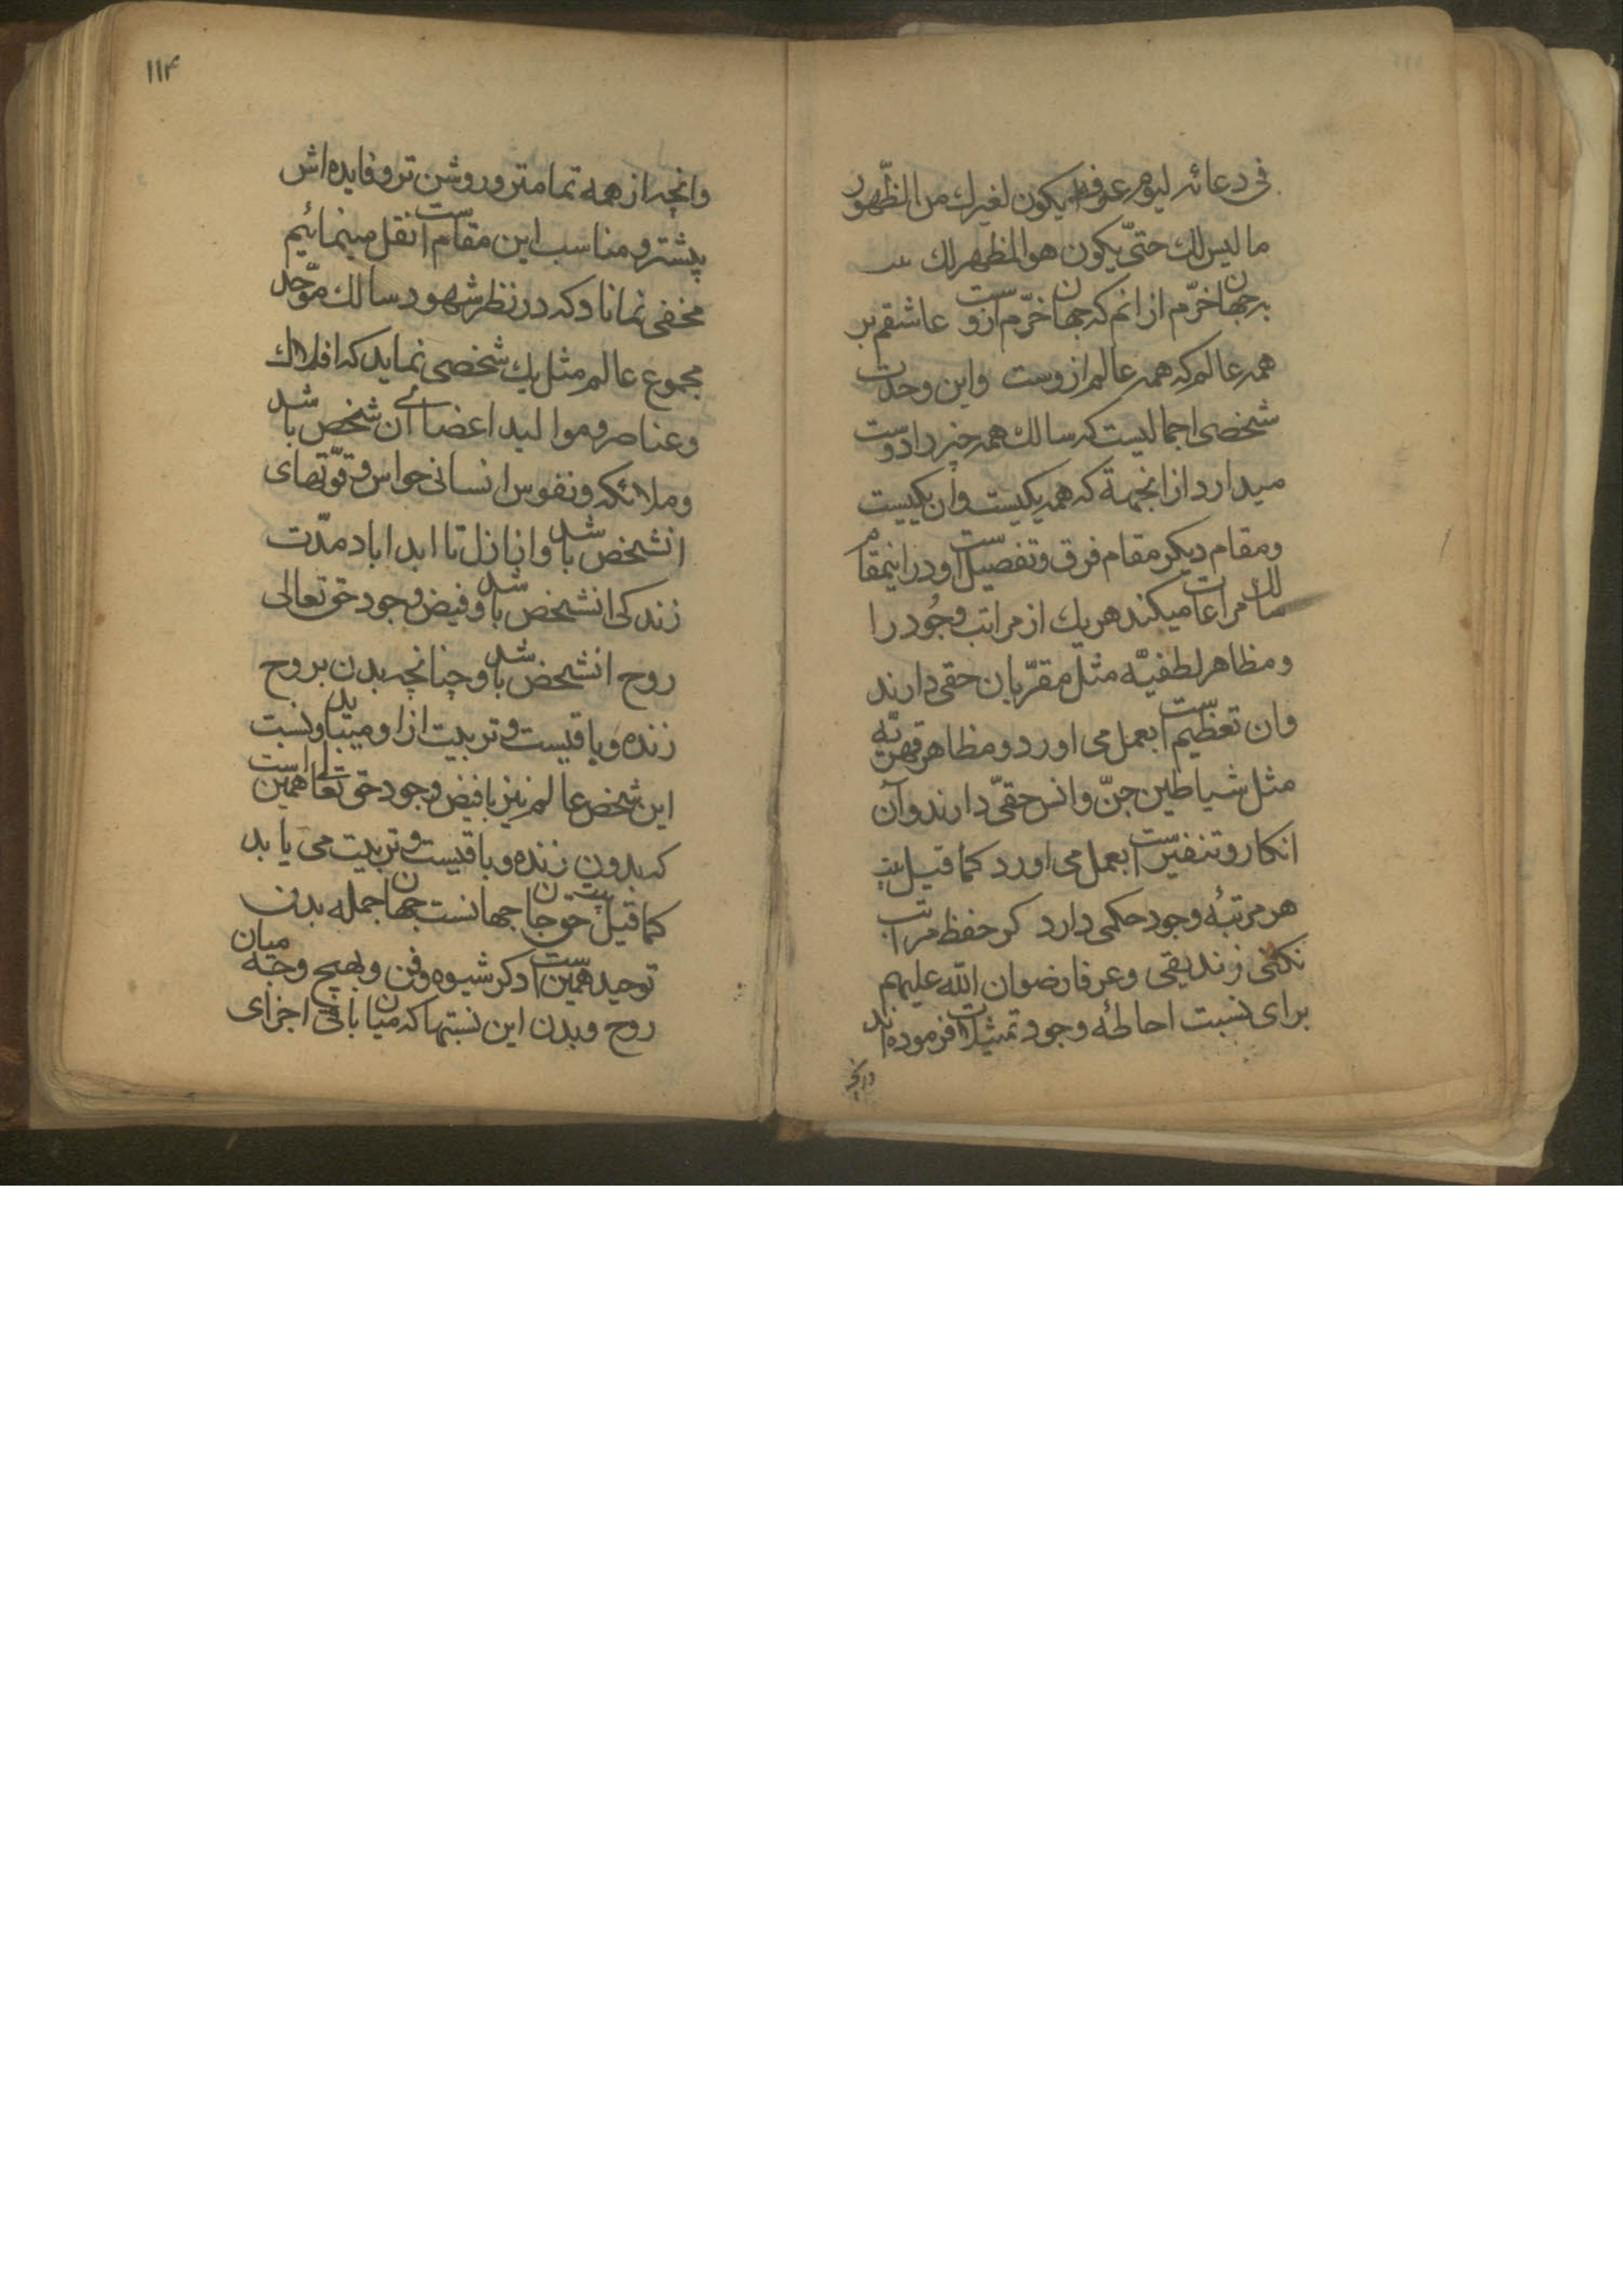 فی دعائه لیوم عرفه ایکون لغیرك من الظّهور
ما لیس لك حتیّ یکون هو المظهر لك
بجهان خرّم از انم که جهان خرّم ازوست عاشقم بر
همه عالم که همه عالم ازوست واین وحدت
شخصی اجمالیست که سالك همه چیز را دوست
میدارد از انجهة که همه یکیست وان یکیست
ومقام دیکر مقام فرق وتفصیل است ودر اینمقام
سالك مراعات میکند هر یك از مراتب وجُود را
ومظاهر لطفیّه مثل مقرّبان حقی دارند
وان تعظیم است بعمل می اورد ومظاهر قهریّه
مثل شیاطین جنّ وانس حقیّ دارند وآن
انکار وتنفیر است بعمل می اورد کما قیل بیت
هر مرتبهٔ وجود حکمی دارد کر حفظ مراتب
نکنی زندیقی وعرفا رضوان الله علیهم
برای نسبت احاطهٔ وجود تمثیلات فرموده اند
وانچه
۱۱۴
وانچه از همه تمامتر وروشن تر وفایده اش
بیشتر ومناسب این مقام است نقل مینمائیم
مخفی نماناد که در نظر شهود سالك موّحد
مجموع عالم مثل یك شخصی نماید که افلاك
وعناصر وموالید اعضائے آن شخص باشد
وملائکه ونفوس انسانی حواس وقوّتهای
انشخص باشد واز ازل تا ابد اباد مدّت
زندکی انشخص باشد وفیض وجود حق تعالی
روح انشخص باشد وچنانچه بدن بروح
زنده وباقیست وتربیت از او مییابد ونسبت
این شخص عالم نیز بافیض وجود حق تعالی همین است
که بدون زنده وباقیست وتربیت می یابد
کما قیل بیت حق جان جهانست جهان جمله بدن
توحید همین است دکر شیوه وفن وبهیچ وجه میان
روح وبدن این نسبتها که میان باقی اجزای